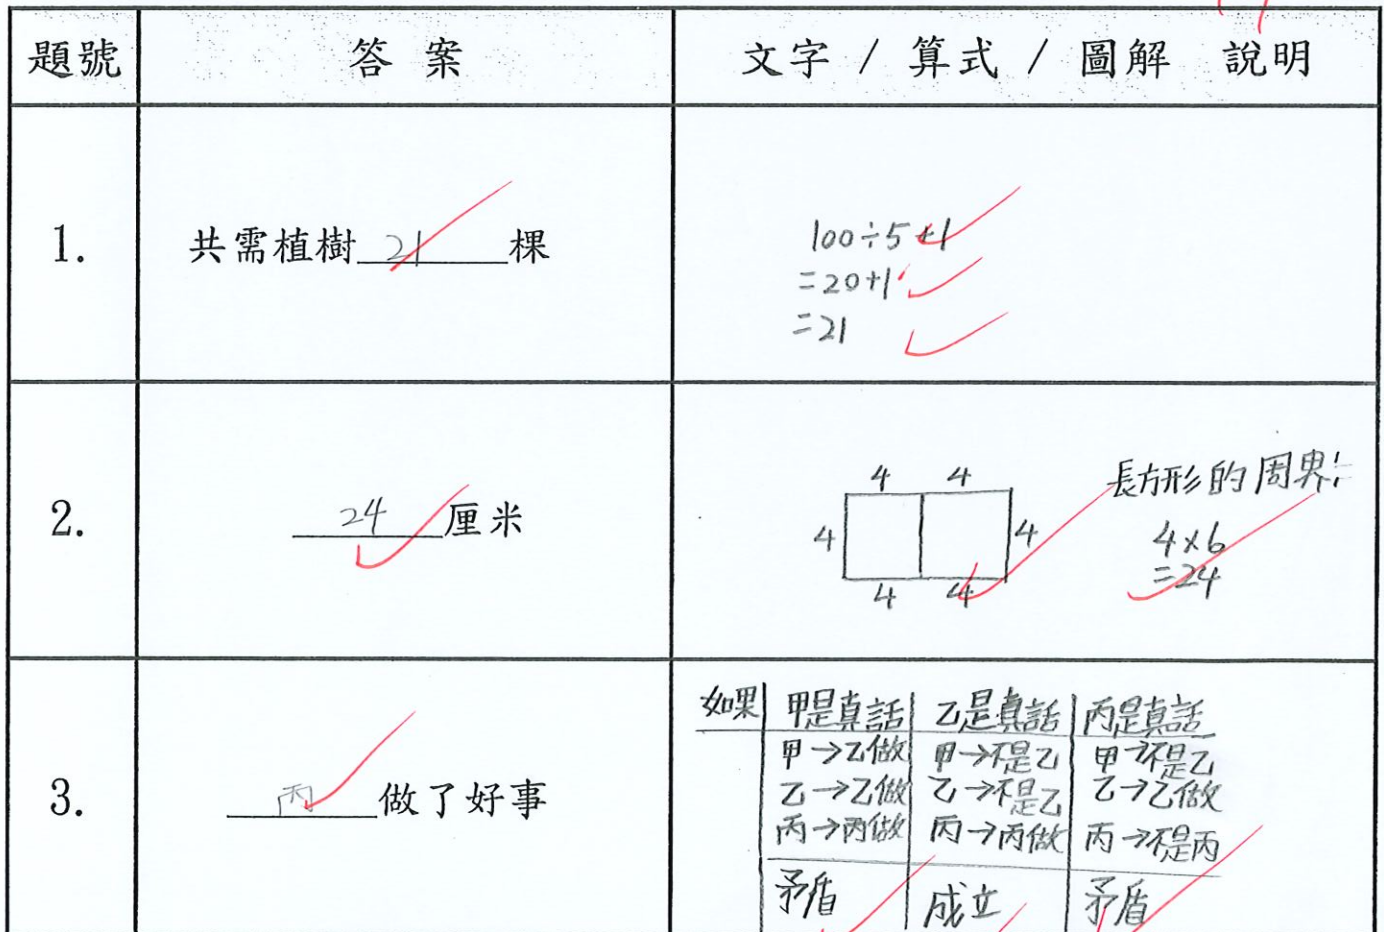 題號 答案 文字 / 算式 / 圖解 說明
1. 共需植樹 21 棵
100÷5+1
=20+1
=21
2. 24 厘米
4 4
4 4
4 4
長方形的周界:
4×6
=24
3. 丙 做了好事
如果 甲是真話 乙是真話 丙是真話
甲→乙做 甲→不是乙 甲→不是乙
乙→乙做 乙→不是乙 乙→乙做
丙→丙做 丙→丙做 丙→不是丙
矛盾 成立 矛盾